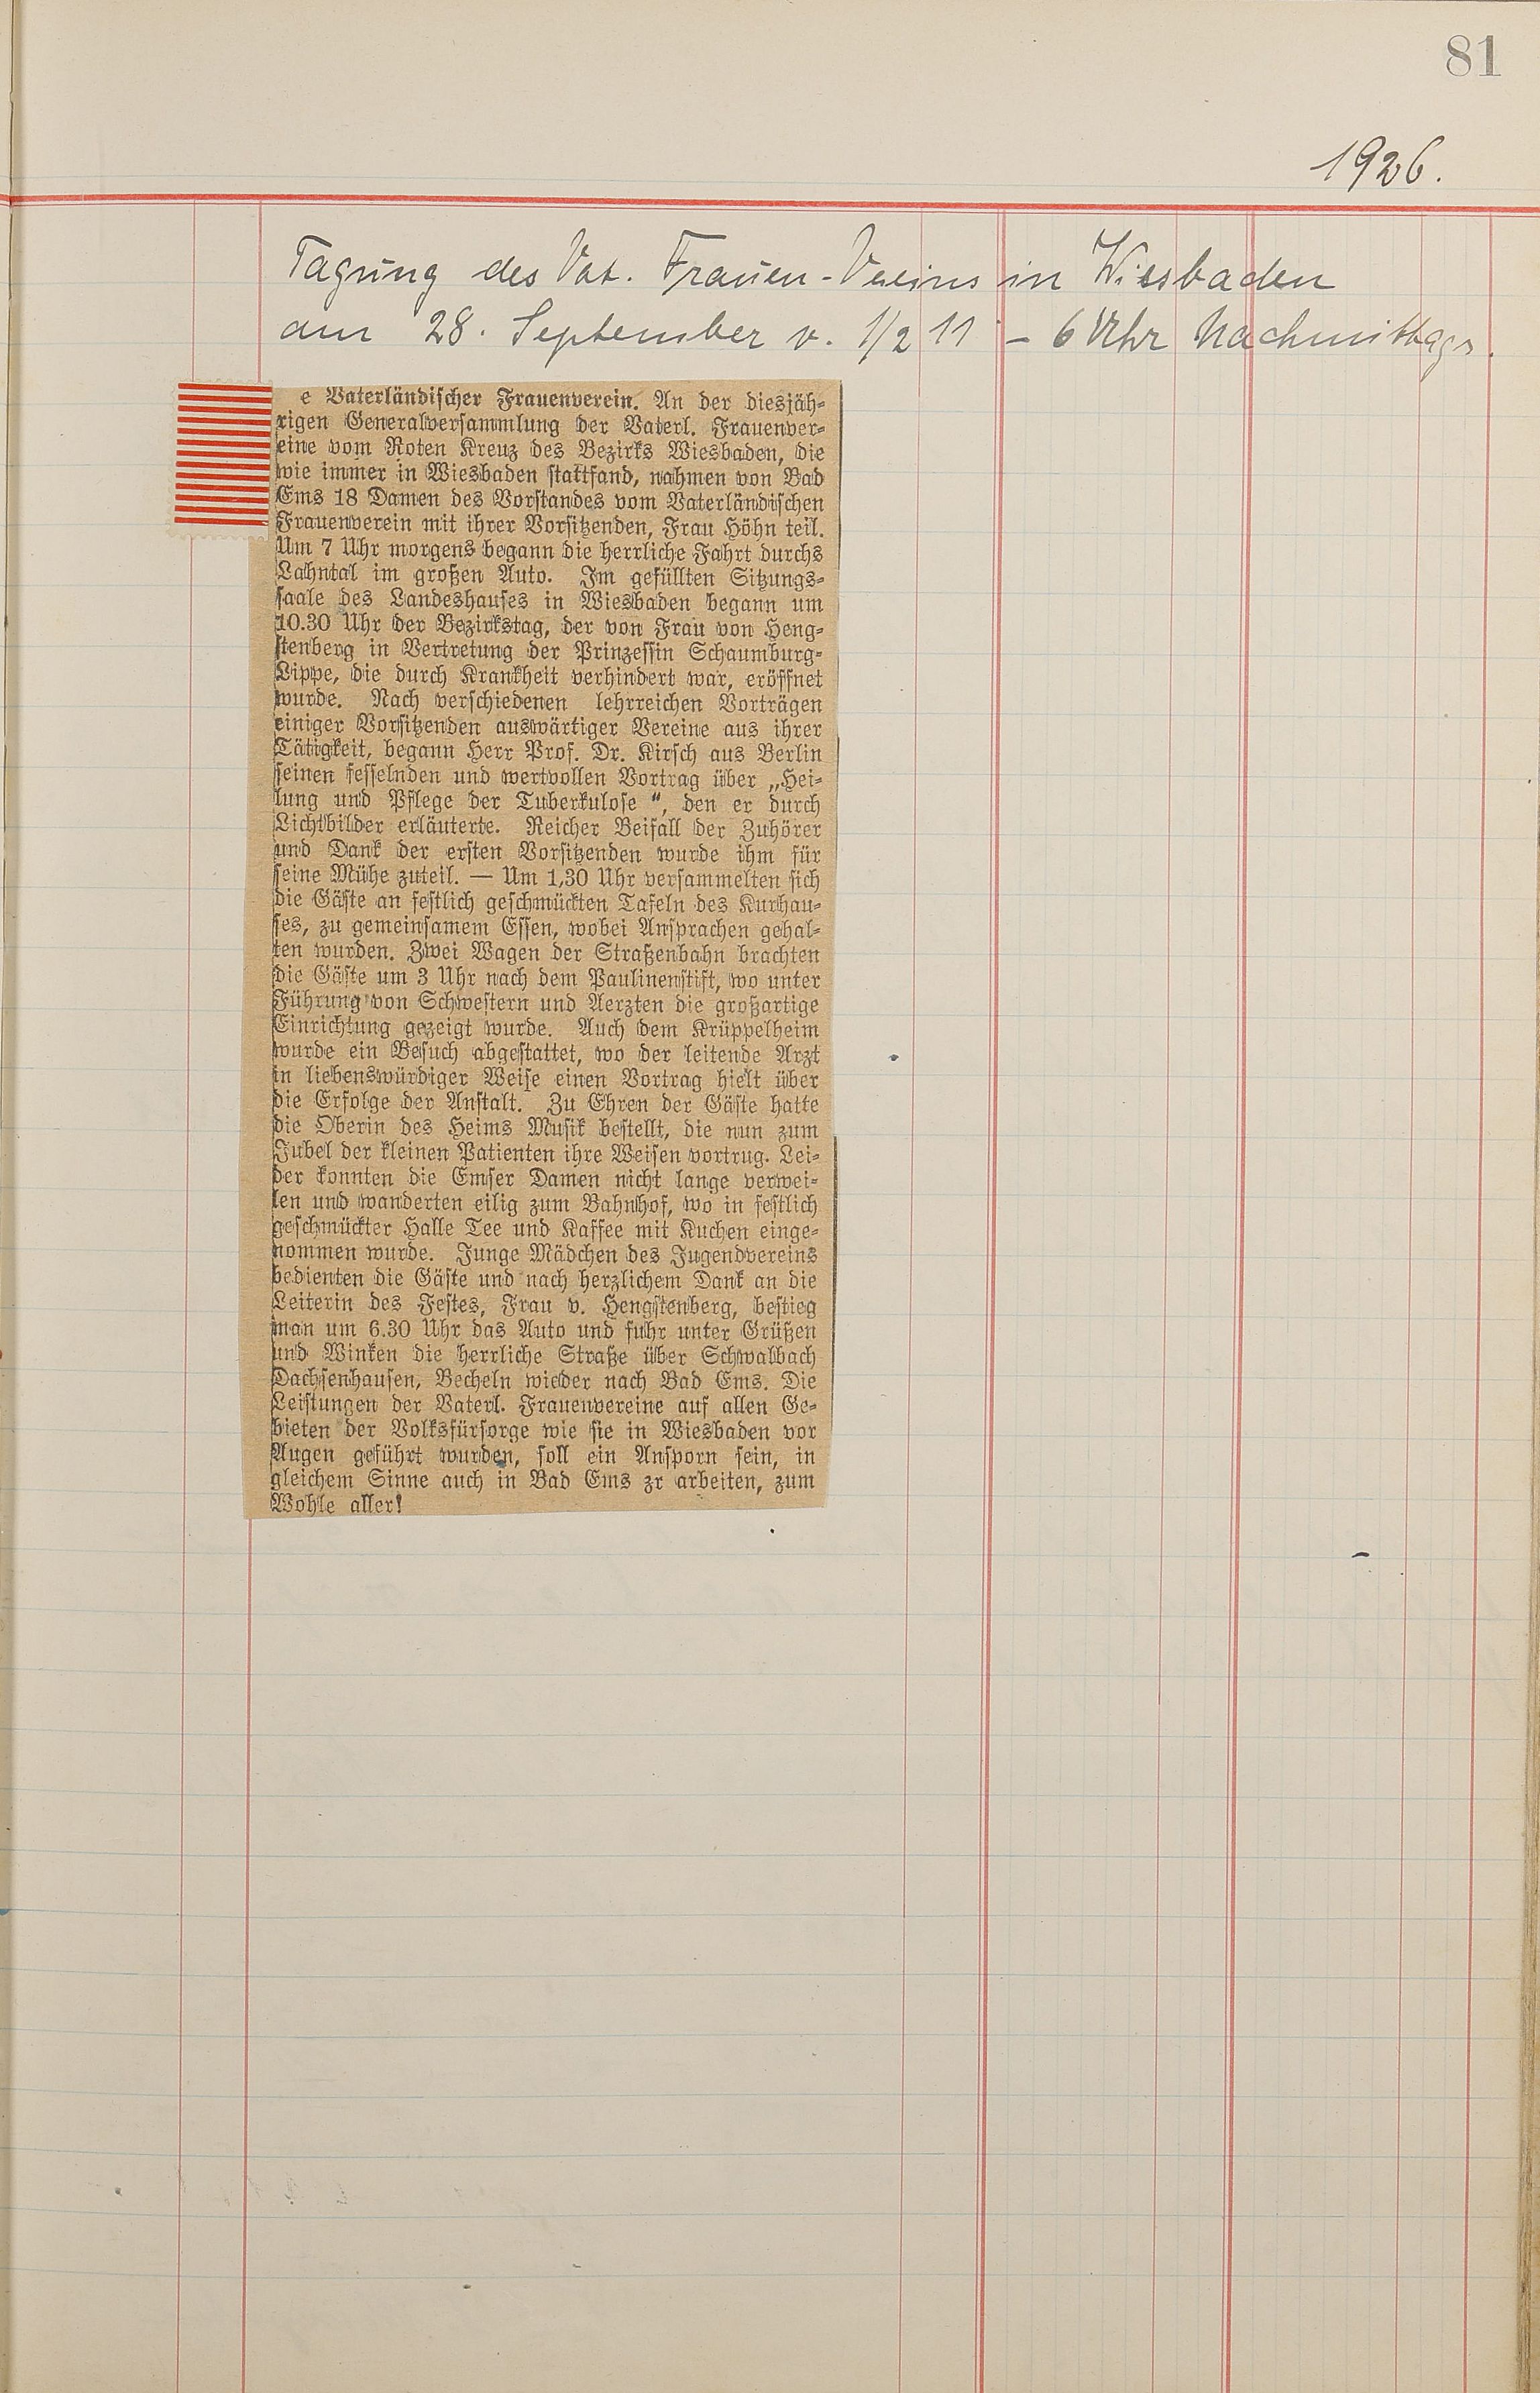 81
1926.
Tagung des Vat. Frauen-Vereins in Wiesbaden
am 28. September v. 1/2 11 – 6 Uhr Nachmittags.
e Vaterländischer Frauenverein. An der diesjäh-
rigen Generalversammlung der Vaterl. Frauenver-
eine vom Roten Kreuz des Bezirks Wiesbaden, die
wie immer in Wiesbaden stattfand, nahmen von Bad
Ems 18 Damen des Vorstandes vom Vaterländischen
Frauenverein mit ihrer Vorsitzenden, Frau Höhn teil.
Um 7 Uhr morgens begann die herrliche Fahrt durchs
Lahntal im großen Auto. Im gefüllten Sitzungs-
saale des Landeshauses in Wiesbaden begann um
10.30 Uhr der Bezirkstag, der von Frau von Heng-
stenberg in Vertretung der Prinzessin Schaumburg-
Lippe, die durch Krankheit verhindert war, eröffnet
wurde. Nach verschiedenen lehrreichen Vorträgen
einiger Vorsitzenden auswärtiger Vereine aus ihrer
Tätigkeit, begann Herr Prof. Dr. Kirsch aus Berlin
seinen fesselnden und wertvollen Vortrag über „Hei-
lung und Pflege der Tuberkulose “, den er durch
Lichtbilder erläuterte. Reicher Beifall der Zuhörer
und Dank der ersten Vorsitzenden wurde ihm für
seine Mühe zuteil. — Um 1,30 Uhr versammelten sich
die Gäste an festlich geschmückten Tafeln des Kurhau-
ses, zu gemeinsamem Essen, wobei Ansprachen gehal-
ten wurden. Zwei Wagen der Straßenbahn brachten
die Gäste um 3 Uhr nach dem Paulinenstift, wo unter
Führung von Schwestern und Aerzten die großartige
Einrichtung gezeigt wurde. Auch dem Krüppelheim
wurde ein Besuch abgestattet, wo der leitende Arzt
in liebenswürdiger Weise einen Vortrag hielt über
die Erfolge der Anstalt. Zu Ehren der Gäste hatte
die Oberin des Heims Musik bestellt, die nun zum
Jubel der kleinen Patienten ihre Weisen vortrug. Lei-
der konnten die Emser Damen nicht lange verwei-
len und wanderten eilig zum Bahnhof, wo in festlich
geschmückter Halle Tee und Kaffee mit Kuchen einge-
nommen wurde. Junge Mädchen des Jugendvereins
bedienten die Gäste und nach herzlichem Dank an die
Leiterin des Festes, Frau v. Hengstenberg, bestieg
man um 6.30 Uhr das Auto und fuhr unter Grüßen
und Winken die herrliche Straße über Schwalbach
Dachsenhausen, Becheln wieder nach Bad Ems. Die
Leistungen der Vaterl. Frauenvereine auf allen Ge-
bieten der Volksfürsorge wie sie in Wiesbaden vor
Augen geführt wurden, soll ein Ansporn sein, in
gleichem Sinne auch in Bad Ems zr arbeiten, zum
Wohle aller!